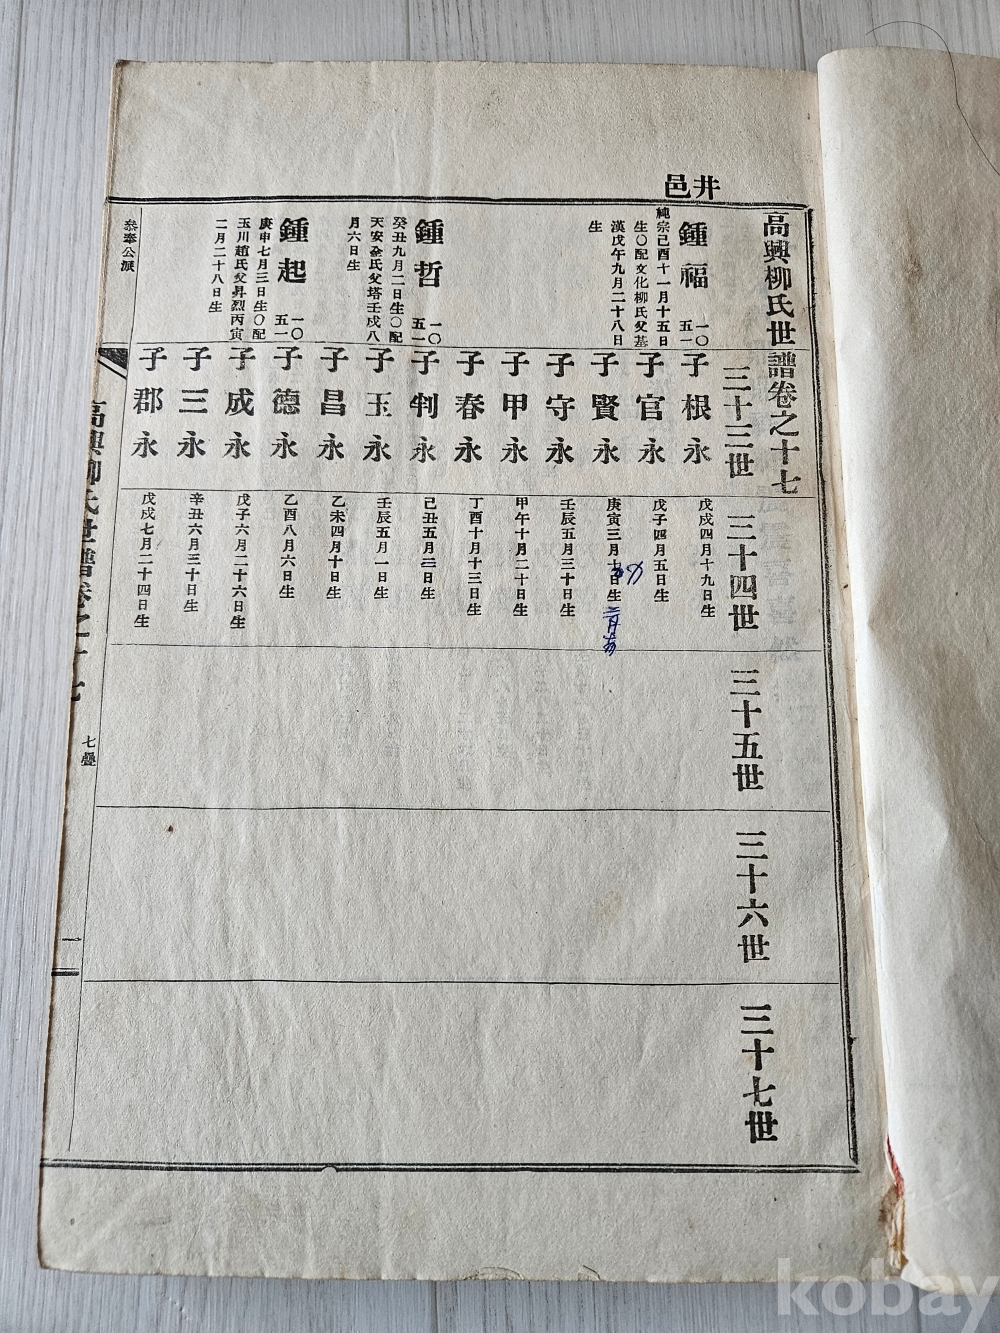 井邑
高興柳氏世譜卷之十七
三十三世
鍾福
一〇
五一
純宗己酉十一月十五日
生〇配文化柳氏父基
漢戊午九月二十八日
生
鍾哲
一〇
五一
癸丑九月二日生〇配
天安全氏父塔壬戌八
月六日生
鍾起
一〇
五一
庚申七月三日生〇配
玉川趙氏父昇烈丙寅
二月二十八日生
叅奉公派
三十四世
子根永
戊戌四月十九日生
子官永
戊子四月五日生
子賢永
庚寅三月十日生
二月
子守永
壬辰五月三十日生
子甲永
甲午十月二十日生
子春永
丁酉十月十三日生
子判永
己丑五月三日生
子玉永
壬辰五月一日生
子昌永
乙未四月十日生
子德永
乙酉八月六日生
子成永
戊子六月二十六日生
子三永
辛丑六月三十日生
子郡永
戊戌七月二十四日生
三十五世
三十六世
三十七世
高興柳氏世譜卷之十七
七疊
一
kobay